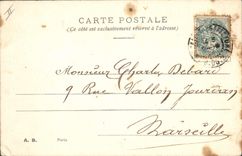 CARTE POSTALE
(Ce côté est exclusivement réservé à l'adresse)
Monsieur Charles Debard
9 Rue Vallon Jourdran
Marseille
A. B. Paris